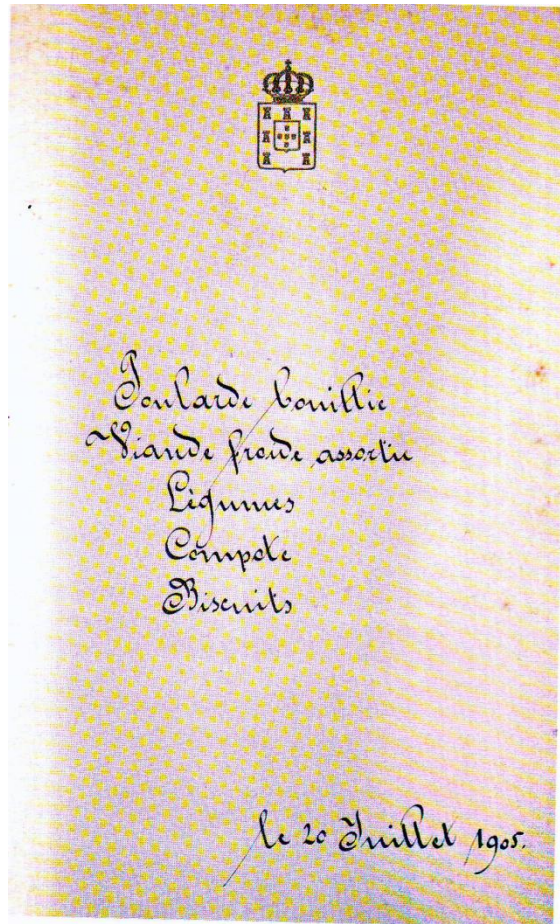 Poularde bouillie
Viande froide assortie
Légumes
Compote
Biscuits
le 20 Juillet 1905.